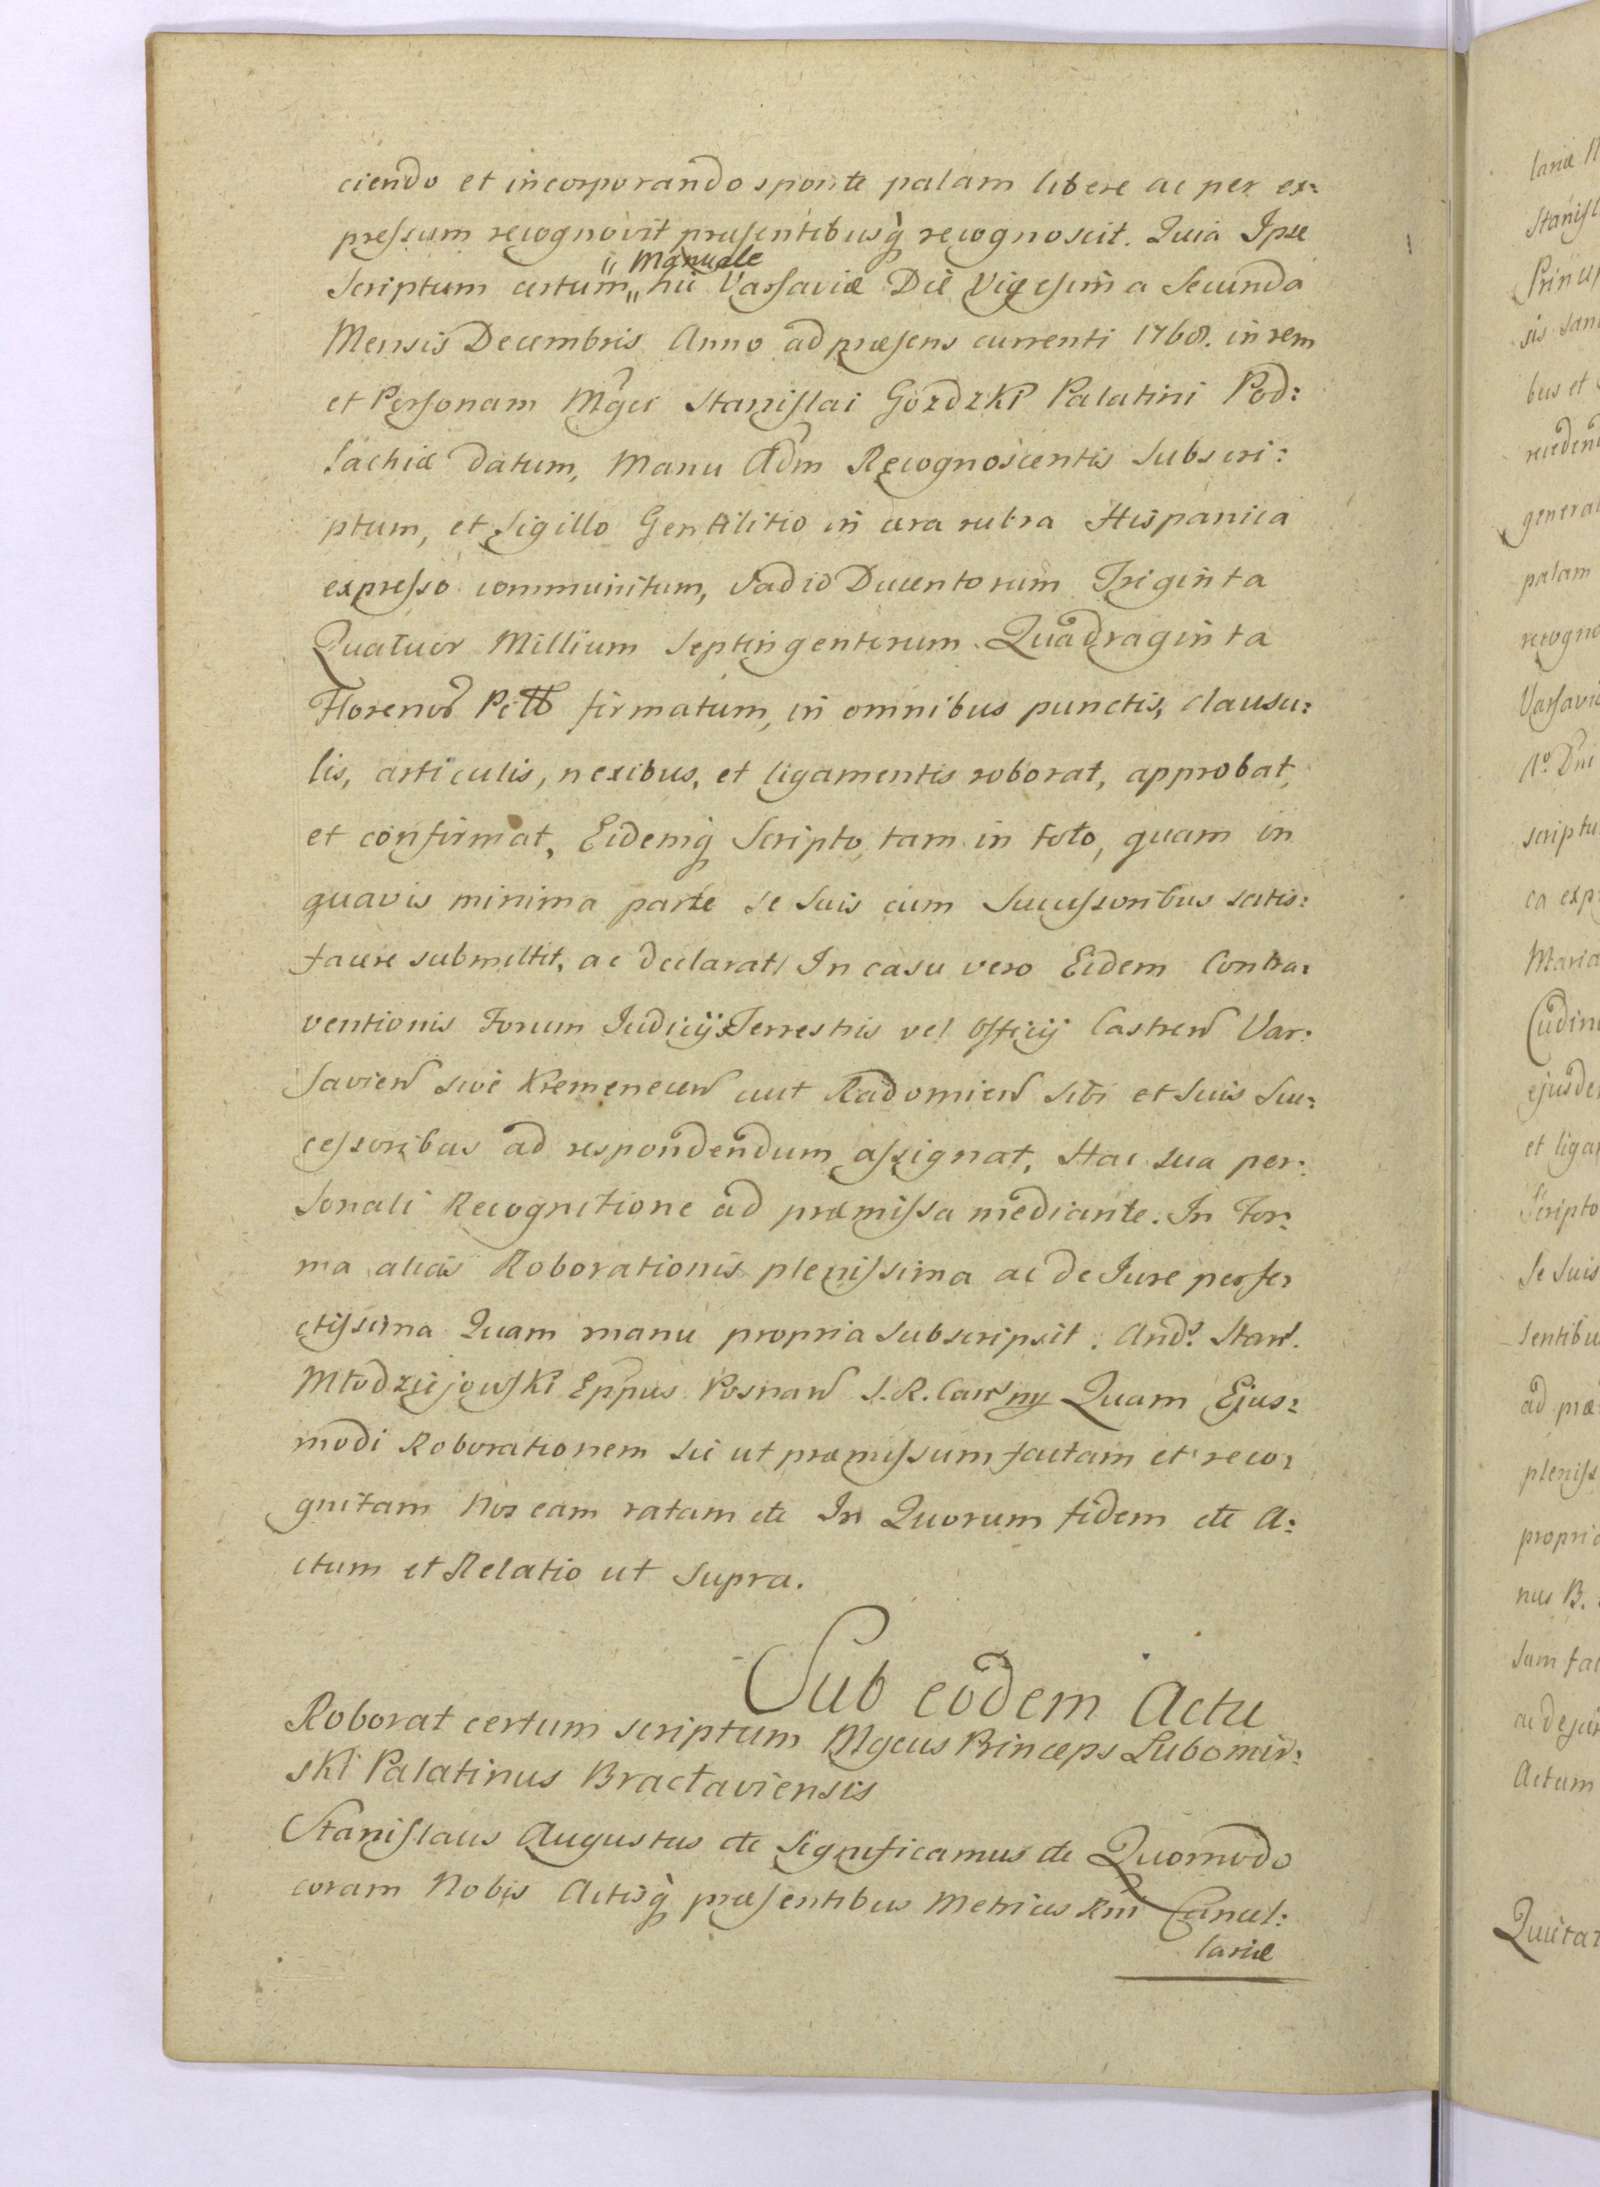 ciendo et incorporando sponte palam libere ac per ex:
pressum recognovit præsentibusq̀ recognoscit. Quia Ipse
Manuale
Scriptum certum hic Varsaviæ Die Vigesima Secunda
Mensis Decembris Anno ad præsens currenti 1768. in rem
et Personam Mgci Stanislai Gozdzki Palatini Pod:
lachiæ datum, Manu Adm Recognoscentis Subscri:
ptum, et Sigillo Gentilitio in cera rubra Hispanica
expresso communitum, Vadio Ducentorum Triginta
Quatuor Millium Septingentorum Quadraginta
Florenor Poll firmatum, in omnibus punctis, clausu:
lis, articulis, nexibus, et ligamentis roborat, approbat,
et confirmat, Eidemq̀ Scripto, tam in toto, quam in
quavis minima parte se suis cum Successoribus satis:
facere submittit, ac declarat, In casu vero Eidem Contra:
ventionis Forum Judicij Terrestris vel Officij Castren Var:
savien sive Kremenecen aut Radomien sibi et suis Suc:
cessoribus ad respondendum assignat, Hac sua per:
sonali Recognitione ad præmissa mediante. In For:
ma alias Roborationis plenissima ac de Jure perfe:
ctissima Quam manu propria Subscripsit. And. Stan.
Młodziejowski Eppus Posnan S. R. Can ny Quam Ejus:
modi Roborationem sic ut præmissum factam et reco:
gnitam Nos eam ratam etc In Quorum fidem etc A:
ctum et Relatio ut supra.
Sub eodem Actu
Roborat certum scriptum Mgcus Princeps Lubomir:
ski Palatinus Bractaviensis
Stanislaus Augustus etc Significamus etc Quomodo
coram Nobis Actisq̀ præsentibus Metrices Rni Cancel:
lariæ
lariæ
Stanisl
Princip
bus et
general
palam
recogno
Varsavi
Ao Dni
scriptu
ca exp
Maria
ejusde
et liga
Scripto
Se suis
sentibu
ad præ
pleniss
propria
nus B.
sum fac
ac de jur
Actum
Quieta